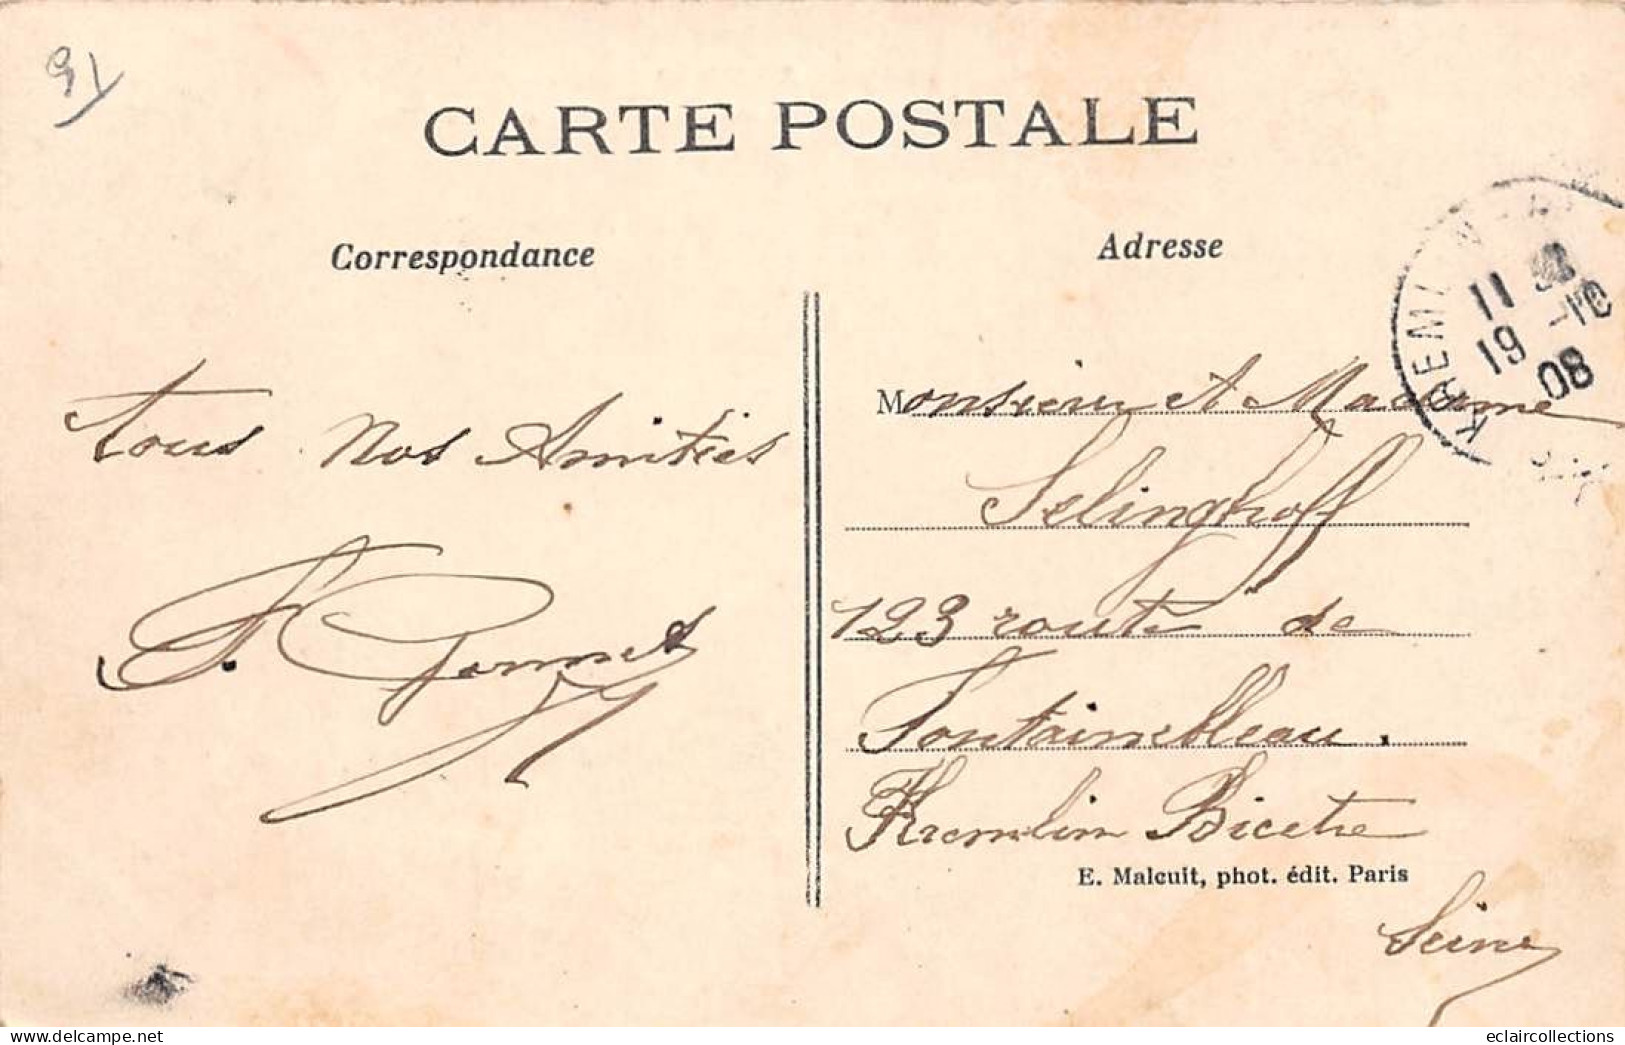 91
CARTE POSTALE
Correspondance
Adresse
KREMLIN-
11
19 -10
08
Tous Nos Amitiés
Monsieur et Madame
Selinghoff
123 route de
Fontainebleau.
Kremlin Bicetre
E. Malcuit, phot. édit. Paris
Seine
eclaircollections